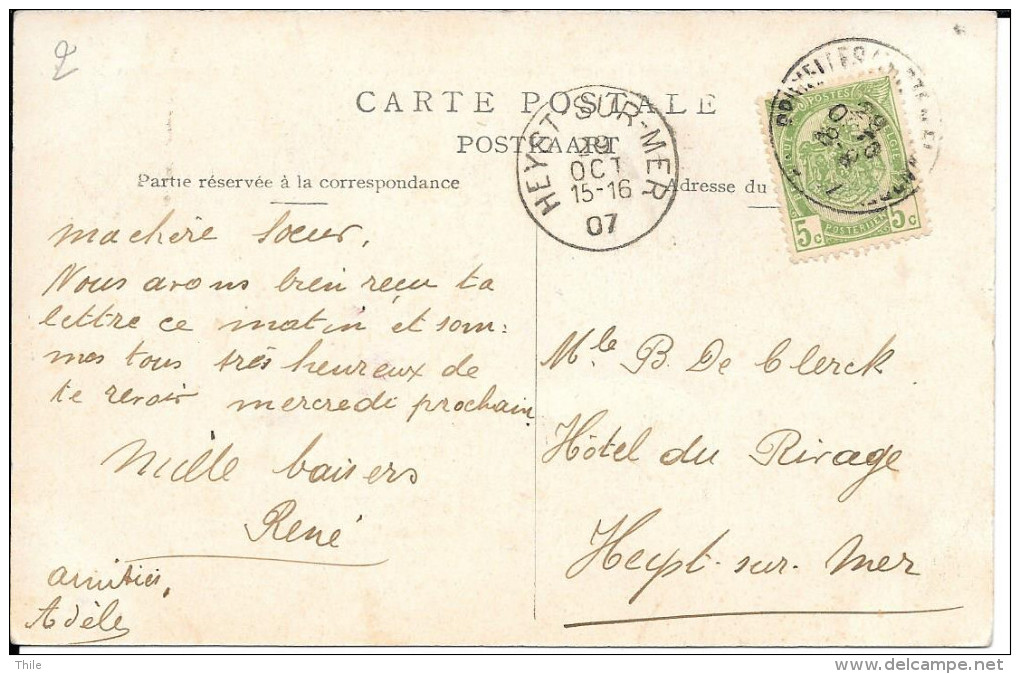 2
CARTE POSTALE
POSTKAART
Partie réservée à la correspondance
Adresse du
HEYST-SUR-MER
29
OCT
15-16
07
POSTES
5c 5c
POSTERIJEN
Ma chère Soeur,
Nous avons bien reçu ta
lettre ce matin et som=
mes tous très heureux de
te revoir mercredi prochain
Mille baisers
René
amitiés,
Adèle
Mlle B. De Clerck
Hôtel du Rivage
Heyst-sur-Mer
Thile
delcampe.net